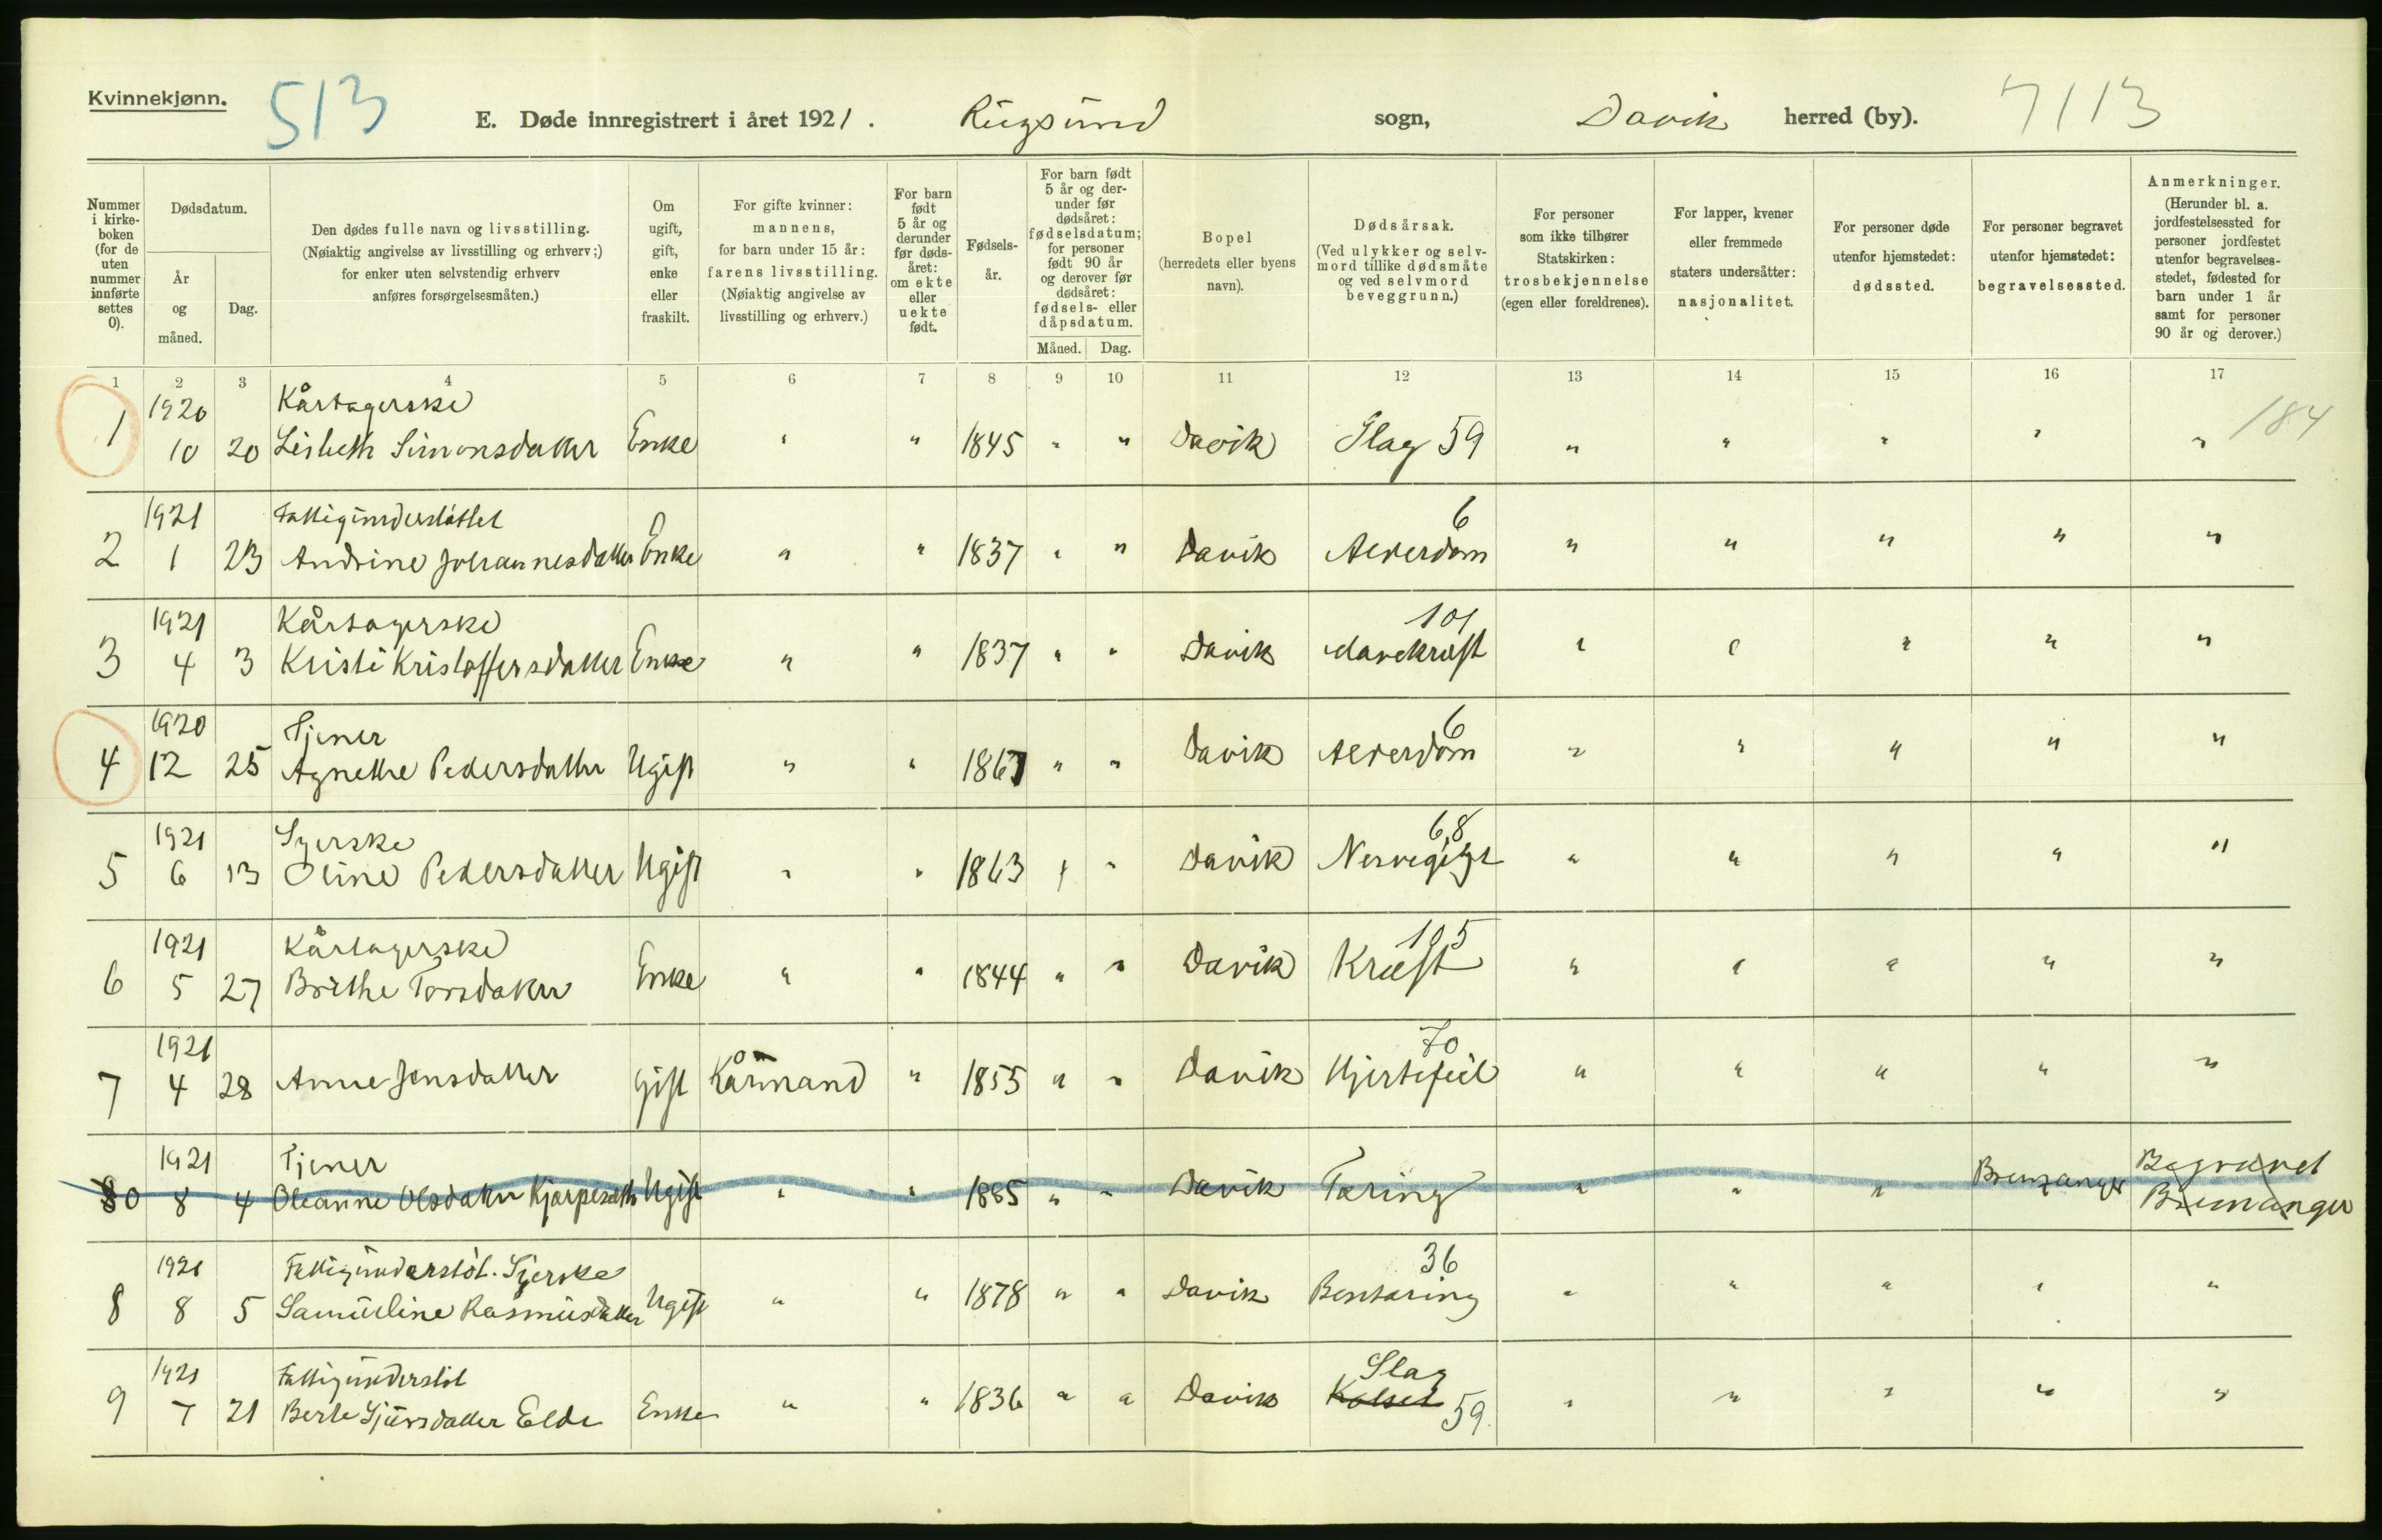 Kvinnekjønn.
513
E. Døde innregistrert i året 1921. Rugsund sogn, Davik herred (by). 7113
Nummer i kirke-boken (for de uten nummer innførte settes 0).
Dødsdatum.
År og måned.
Dag.
Den dødes fulle navn og livsstilling.
(Nøiaktig angivelse av livsstilling og erhverv;)
for enker uten selvstendig erhverv
anføres forsørgelsesmåten.)
Om ugift, gift, enke eller fraskilt.
For gifte kvinner:
mannens,
for barn under 15 år:
farens livsstilling.
(Nøiaktig angivelse av
livsstilling og erhverv.)
For barn født 5 år og derunder før døds-året: om ekte eller uekte født.
Fødsels-år.
For barn født 5 år og der-under før dødsåret: fødselsdatum; for personer født 90 år og derover før dødsåret: fødsels- eller dåpsdatum.
Måned. Dag.
Bopel
(herredets eller byens
navn).
Dødsårsak.
(Ved ulykker og selv-
mord tillike dødsmåte
og ved selvmord
beveggrunn.)
For personer
som ikke tilhører
Statskirken:
trosbekjennelse
(egen eller foreldrenes).
For lapper, kvener
eller fremmede
staters undersåtter:
nasjonalitet.
For personer døde
utenfor hjemstedet:
dødssted.
For personer begravet
utenfor hjemstedet:
begravelsessted.
Anmerkninger.
(Herunder bl. a.
jordfestelsessted for
personer jordfestet
utenfor begravelses-
stedet, fødested for
barn under 1 år
samt for personer
90 år og derover.)
1 2 3 4 5 6 7 8 9 10 11 12 13 14 15 16 17
1920 Kårtagerske
1 10 20 Lisbeth Simonsdatter Enke " " 1845 " " Davik Slag 59 " " " " " 184
1921 Fattigunderstøttet 6
2 1 23 Andrine Johannesdatter Enke " " 1837 " " Davik Alderdom " " " " "
1921 Kårtagerske 101
3 4 3 Kristi Kristoffersdatter Enke " " 1837 " " Davik Mavekræft " " " " "
1920 Tjener 6
4 12 25 Agnethe Pedersdatter Ugift " " 1867 " " Davik Alderdom " " " " "
1921 Syerske 68
5 6 13 Oline Pedersdatter Ugift " " 1863 " " Davik Nervegigt " " " " "
1921 Kårtagerske 105
6 5 27 Brithe Torsdatter Enke " " 1844 " " Davik Kræft " " " " "
1921 70
7 4 28 Anne Jensdatter gift Kårmand " 1855 " " Davik Hjertefeil " " " " "
1921 Tjener Begravet
80 8 4 Oleanne Olsdatter Ugift " " 1885 " " Davik Tæring " " " Bremanger Bremanger
1921 Fattigunderstøt. Syerske 36
8 8 5 Samueline Rasmusdatter Ugift " " 1878 " " Davik Bentæring " " " " "
1921 Fattigunderstøt Slag
9 7 21 Berte Sjursdatter Elde Enke " " 1836 " " Davik 59. " " " " "